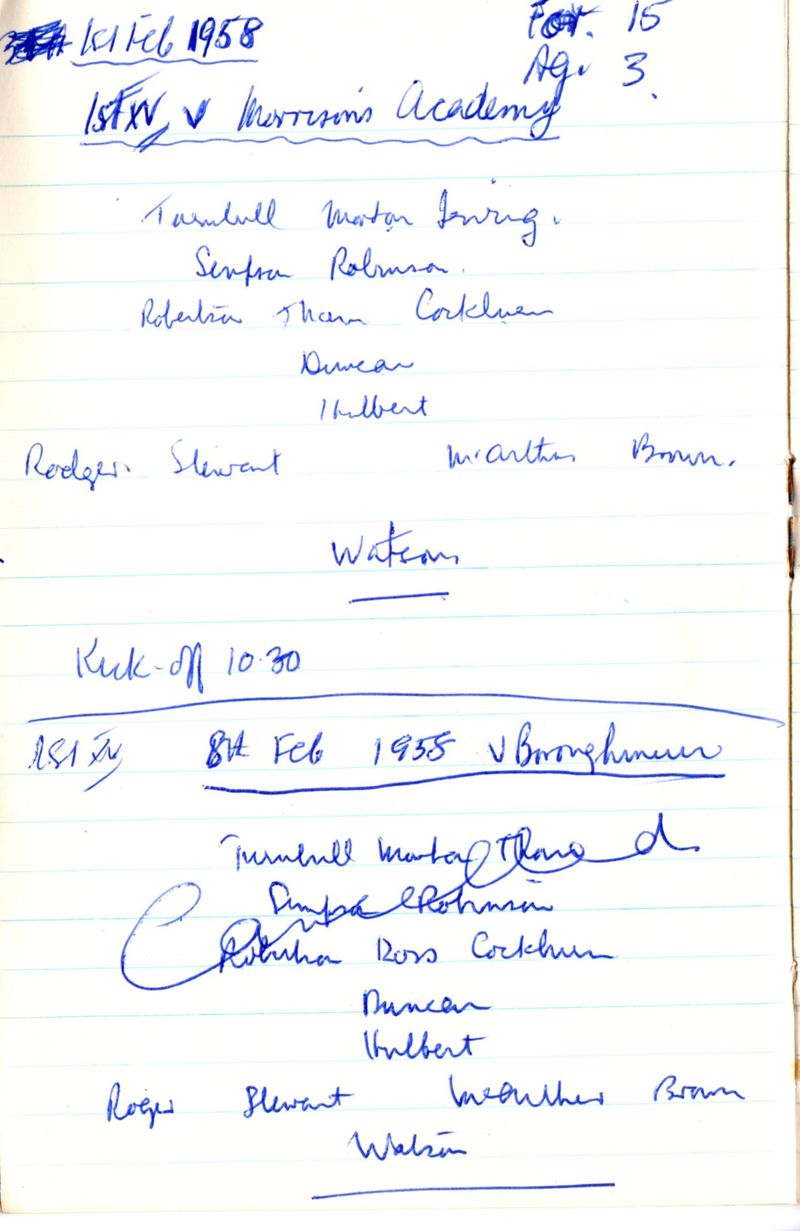 1st Feb 1958
For. 15
Ag. 3
1st XV v Morrison's Academy
Turnbull Morton Irving.
Simpson Robinson.
Robertson Thom Cockburn
Duncan
Hulbert
Rodger. Stewart McArthur Brown.
Watson
Kick-off 10.30
1st XV 8th Feb 1958 v Boroughmuir
Turnbull Morton Thom
Cancelled
Simpson Robinson
Robertson Ross Cockburn
Duncan
Hulbert
Roger Stewart McArthur Brown
Watson